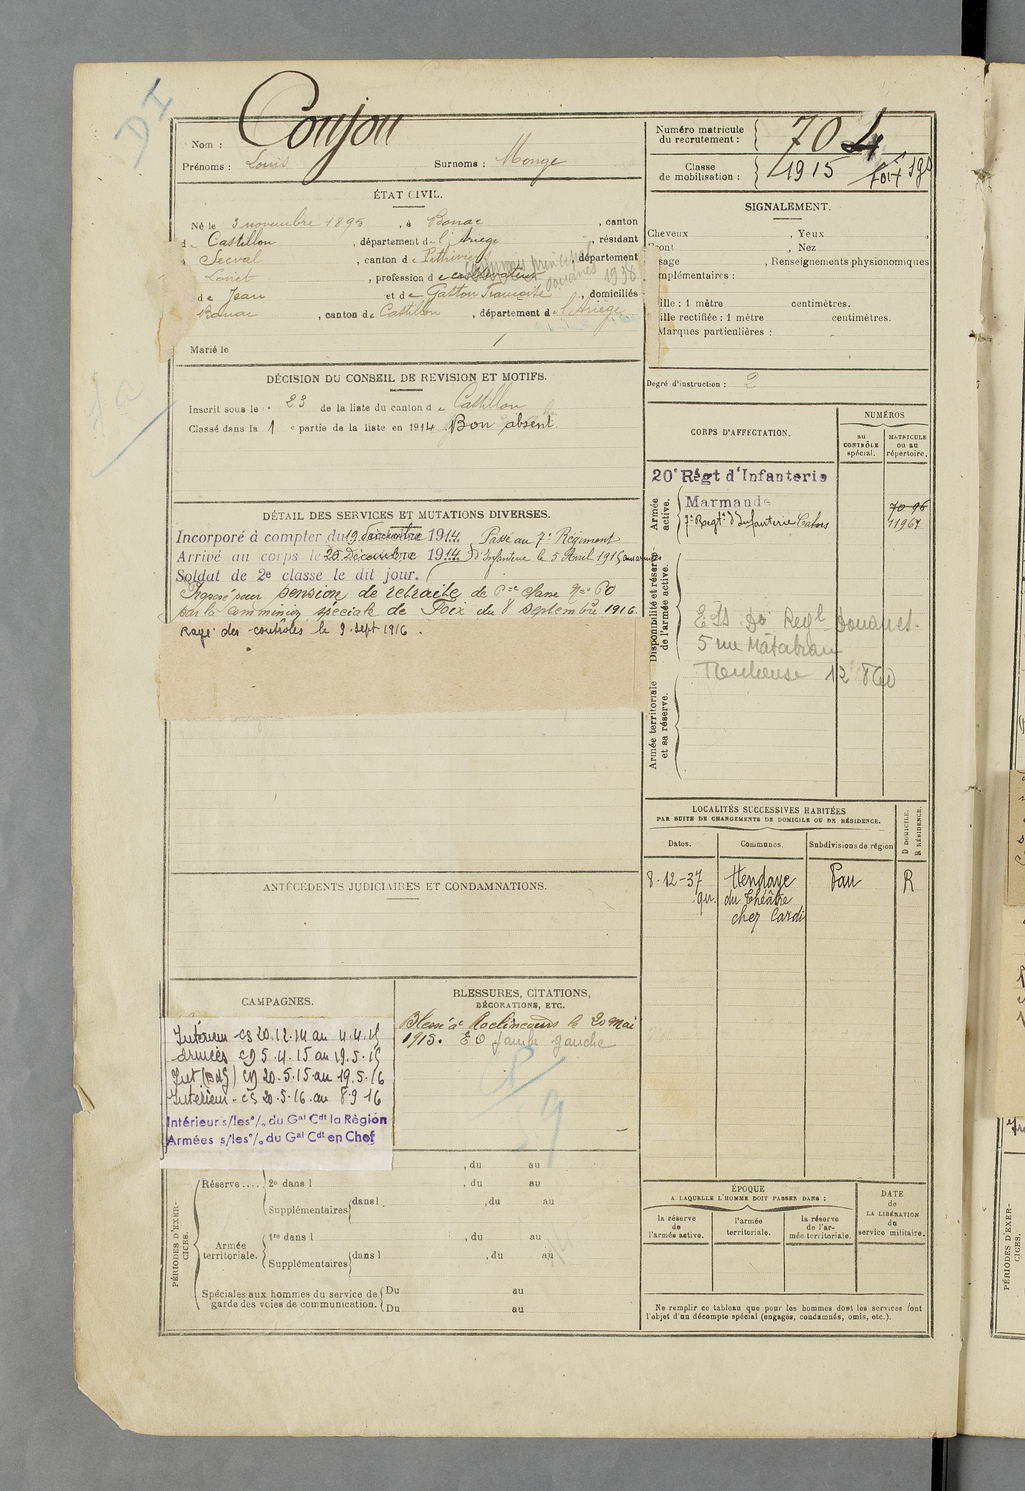 DI
Nom : Coujou
Prénoms : Louis Surnoms : Monge
Numéro matricule du recrutement : 704
Classe de mobilisation : 1915
ÉTAT CIVIL.
Né le 3 novembre 1895, à Bonac, canton
d Castillon, département de l'Ariège, résidant
à , canton de , département
Loiret, profession de cultivateur
de Jean et de Gaston Françoise, domiciliés
Bonac, canton de Castillon, département de l'Ariège
Marié le
SIGNALEMENT.
Cheveux , Yeux ,
Front , Nez
sage , Renseignements physionomiques
mplémentaires :
ille : 1 mètre centimètres.
ille rectifiée : 1 mètre centimètres.
Marques particulières :
Degré d'instruction : 2
DÉCISION DU CONSEIL DE REVISION ET MOTIFS.
Inscrit sous le n° 23 de la liste du canton de Castillon
Classé dans la 1 e partie de la liste en 1914 Bon absent
CORPS D'AFFECTATION.
NUMÉROS
au CONTRÔLE spécial.
MATRICULE ou au répertoire.
Armée active.
20e Régt d'Infanterie
Marmande
7e Regt d'Infanterie Cahors 11967
Disponibilité et réserve de l'armée active.
Douanes
5 rue Matabiau
Toulouse 12 860
Armée territoriale et sa réserve.
DÉTAIL DES SERVICES ET MUTATIONS DIVERSES.
Incorporé à compter du 19 décembre 1914 Passé au 7e Régiment
Arrivé au corps le 20 Décembre 1914 d'Infanterie le 5 Avril 1915 aux armées
Soldat de 2e classe le dit jour.
Proposé pour pension de retraite de classe 60
par la commission spéciale de Foix du 8 septembre 1916.
Rayé des contrôles le 9 sept 1916.
LOCALITÉS SUCCESSIVES HABITÉES
PAR SUITE DE CHANGEMENTS DE DOMICILE OU DE RÉSIDENCE.
Dates. Communes. Subdivisions de région D DOMICILE. R RÉSIDENCE.
8-12-37 Hendaye Pau R
qu. du théâtre
chez Cardi
ANTÉCÉDENTS JUDICIAIRES ET CONDAMNATIONS.
CAMPAGNES.
Intérieur CS 20.12.14 au 4.4.15
Armées CD 5.4.15 au 19.5.15
Int (BAG) CD 20.5.15 au 19.5.16
Intérieur - CS 20.5.16 au 8.9.16
Intérieur s/les % du Gal Cdt la Région
Armées s/les % du Gal Cdt en Chef
BLESSURES, CITATIONS,
DÉCORATIONS, ETC.
Blessé à Roclincourt le 20 mai
1915. EO jambe gauche
PÉRIODES D'EXERCICES.
, du au
Réserve .... 2e dans l , du au
Supplémentaires dans l , du au
Armée territoriale. 1re dans l , du au
Supplémentaires dans l , du au
Spéciales aux hommes du service de garde des voies de communication. Du au
Du au
ÉPOQUE
A LAQUELLE L'HOMME DOIT PASSER DANS :
la réserve de l'armée active.
l'armée territoriale.
la réserve de l'armée territoriale.
DATE de LA LIBÉRATION du service militaire.
Ne remplir ce tableau que pour les hommes dont les services font
l'objet d'un décompte spécial (engagés, condamnés, omis, etc.).
PÉRIODES D'EXERCICES.